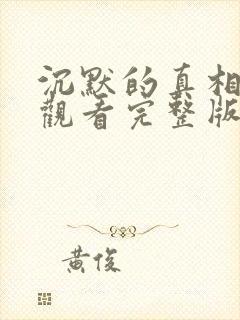 沉默的真相
觀看完整版
黃俊